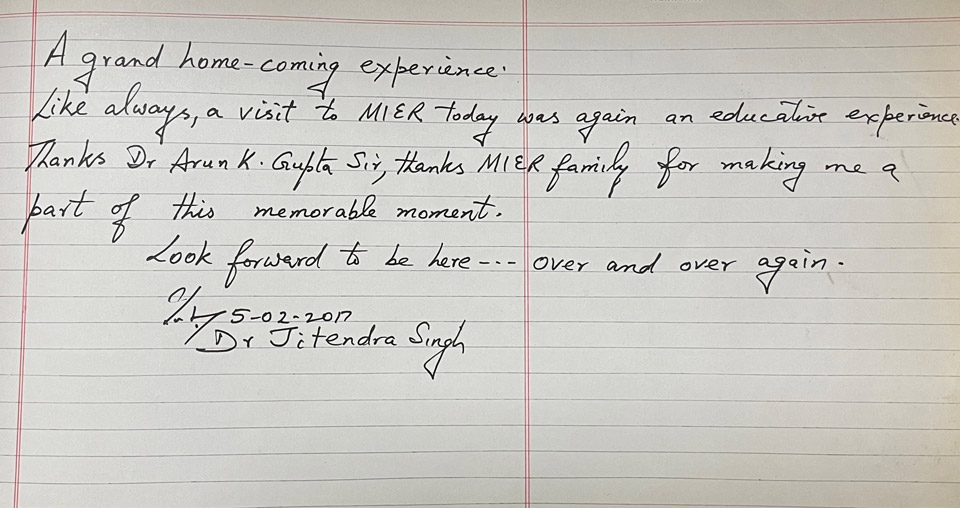 A grand home-coming experience.
Like always, a visit to MIER today was again an educative experience.
Thanks Dr Arun K. Gupta Sir, thanks MIER family for making me a
part of this memorable moment.
Look forward to be here --- over and over again.
5-02-2017
Dr Jitendra Singh